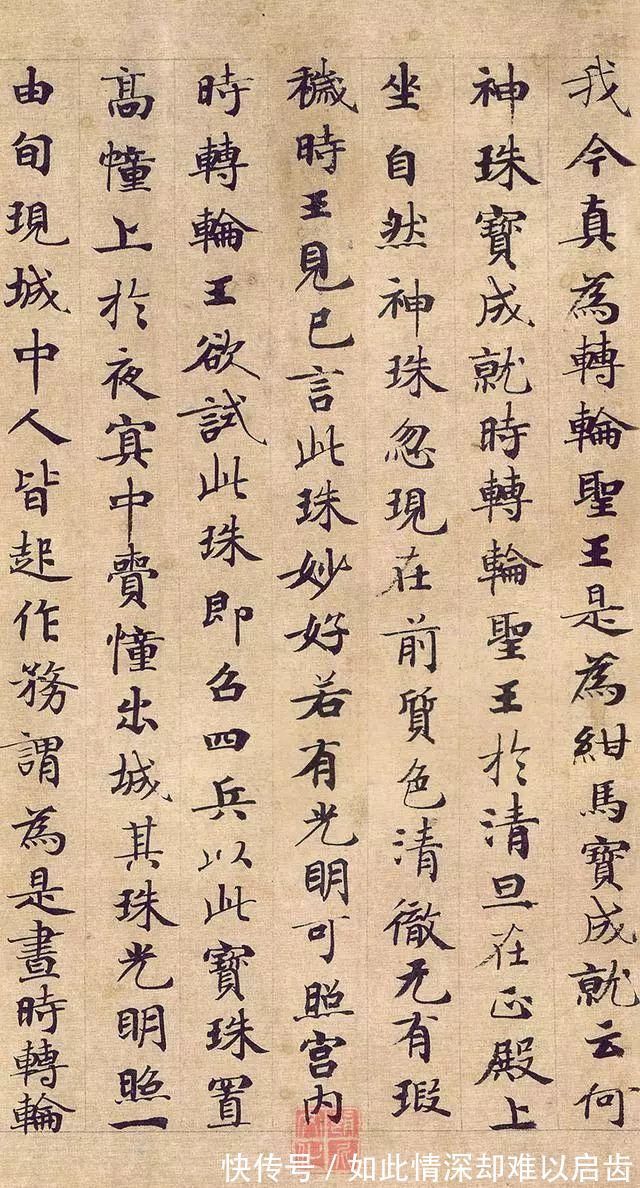 我今真為轉輪聖王是為紺馬寶成就云何
神珠寶成就時轉輪聖王於清旦在正殿上
坐自然神珠忽現在前質色清徹无有瑕
穢時王見已言此珠妙好若有光明可照宮内
時轉輪王欲試此珠即召四兵以此寶珠置
高幢上於夜㝠中賷幢出城其珠光明照一
由旬現城中人皆起作務謂為是晝時轉輪
快传号/如此情深却难以启齿